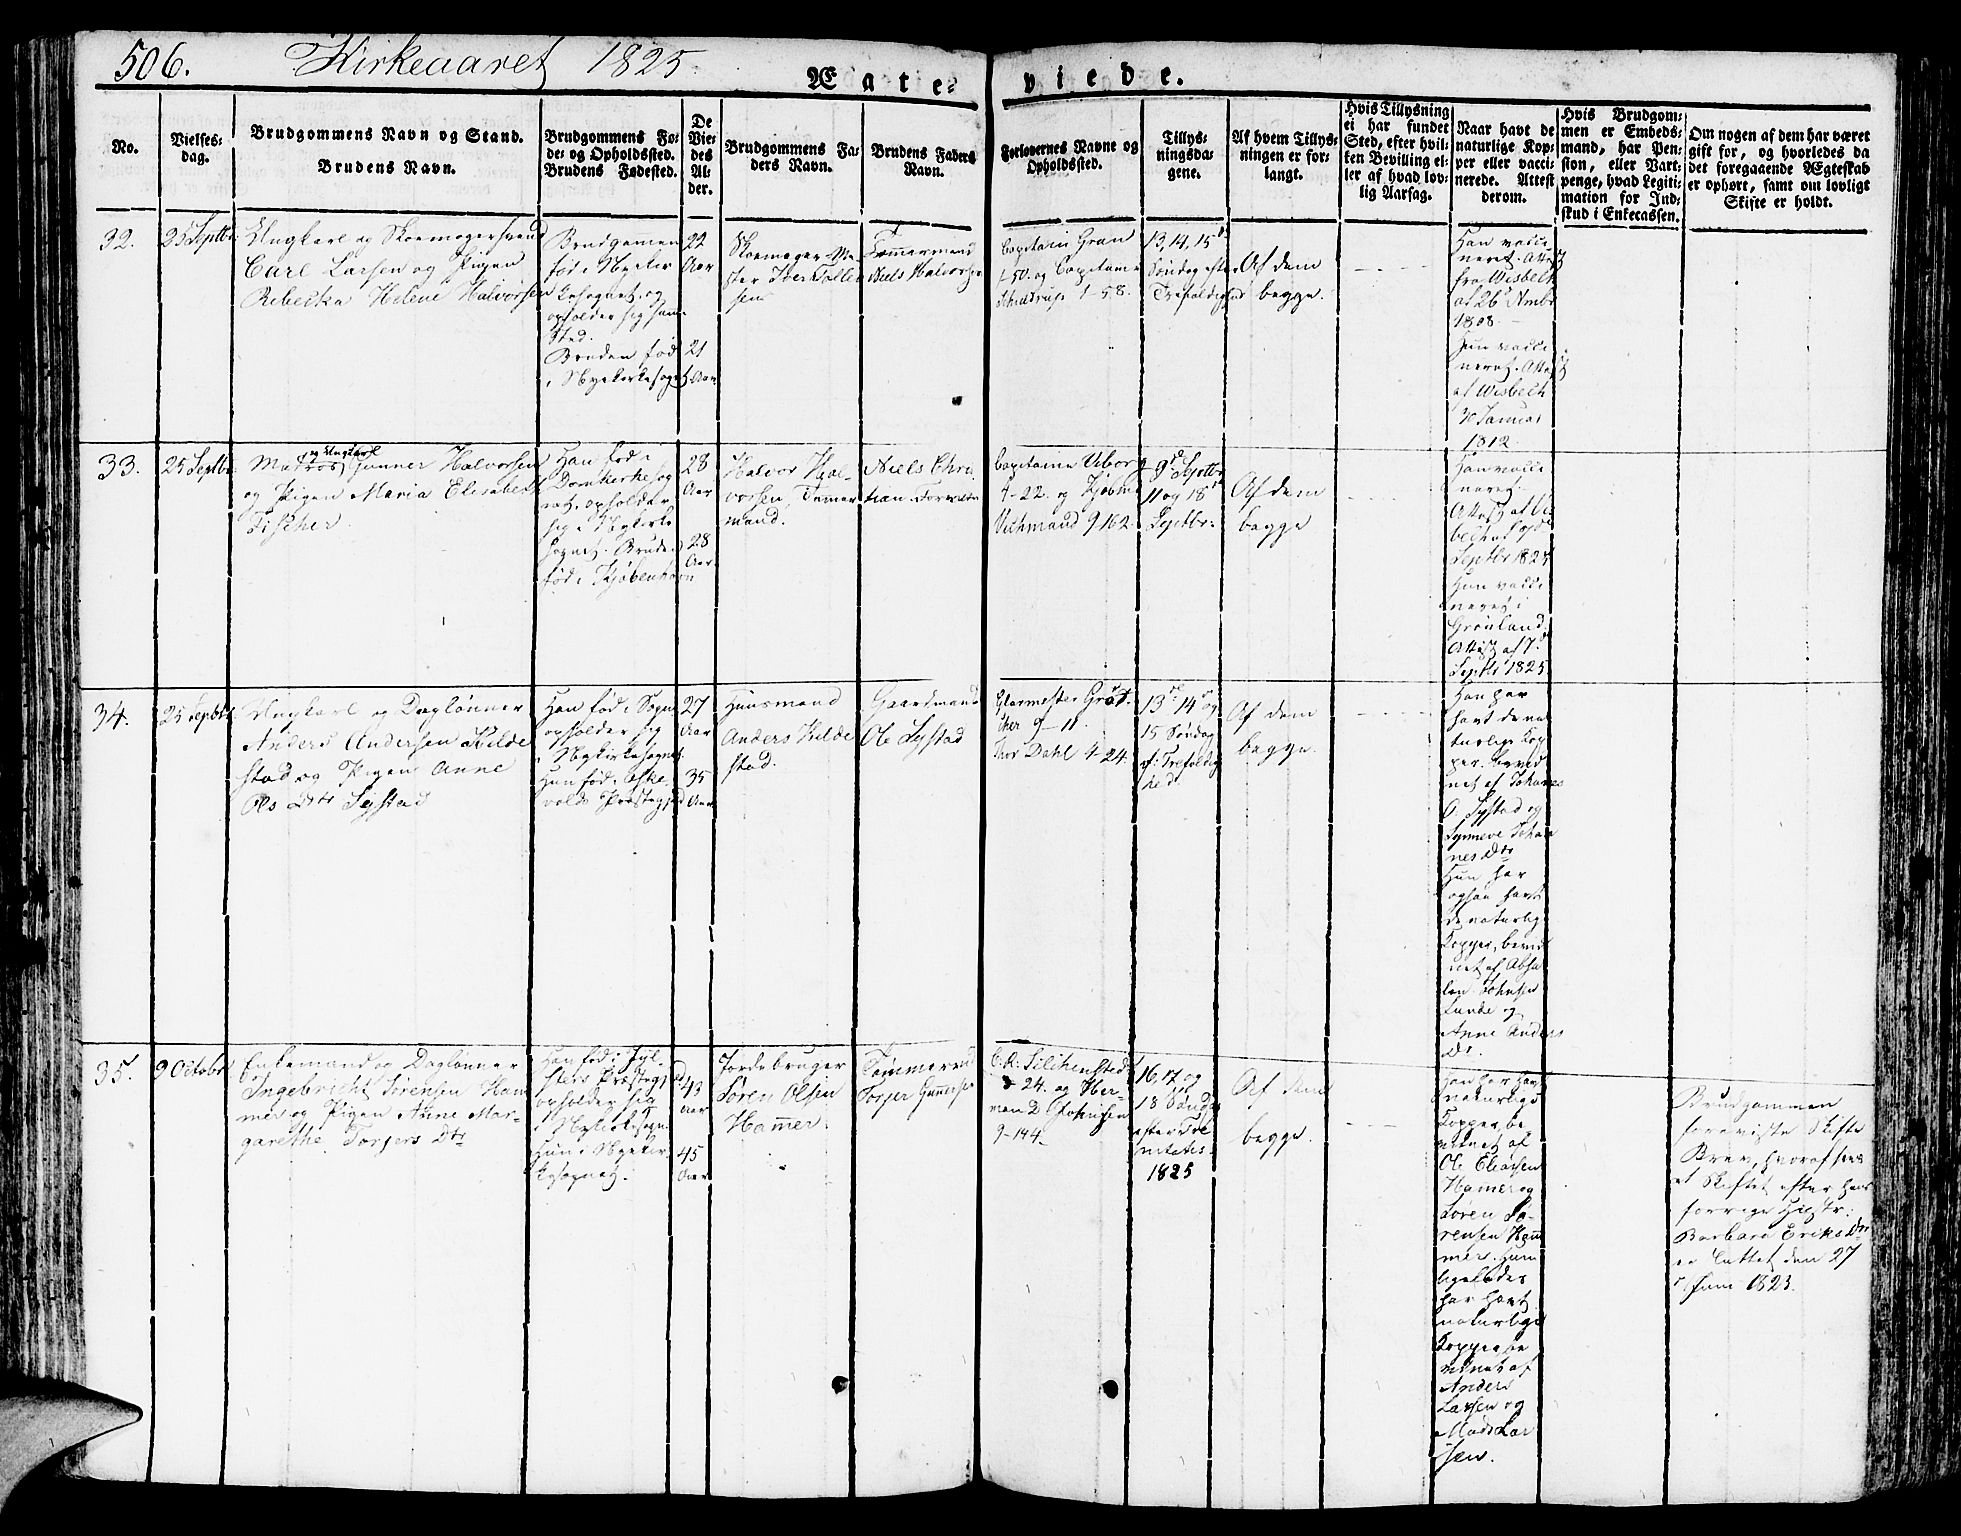 506. Kirkeaaret 1825.
Ægte- viede.
No.
Vielses-
dag.
Brudgommens Navn og Stand.
Brudens Navn.
Brudgommens Fø-
de- og Opholdssted.
Brudens Fødested.
De
Vie-
des
Al-
der.
Brudgommens Fa-
ders Navn.
Brudens Faders
Navn.
Forlovernes Navne og
Opholdssted.
Tillys-
ningsda-
gene.
Af hvem Tillys-
ningen er for-
langt.
Hvis Tillysning
ei har fundet
Sted, efter hvil-
ken Bevilling el-
ler af hvad lov-
lig Aarsag.
Naar havt de
naturlige Kop-
per eller vacci-
nerede. Attest
derom.
Hvis Brudgom-
men er Embeds-
mand, har Pen-
sion, eller Vart-
penge, hvad Legiti-
mation for Ind-
skud i Enkecassen.
Om nogen af dem har været
gift for, og hvorledes da
det foregaaende Ægteskab
er ophørt, samt om lovligt
Skifte er holdt.
32.
25 Septbr
Ungkarl og Skomagersvend
Carl Larsen og Pigen
Rebekka Helene Halvorsen
Brudgomen
fød i Nykir-
kesognet, og
opholder sig sam-
Sted.
Bruden fød
i Nykirkesognet
22
Aar
21
Aar
Skomager Me-
ster Iver Tolle-
sen
Tømermand
Niels Halvorsen
Capitain Gran
1-50. og Capitaine
1-58.
13, 14, 15de
Søndag efter
Trefoldighed
Af dem
begge.
Han vacci-
neret. Attest
fra Wisbech
af 26 Novbr
1808.
Hun vacci-
neret. Attest
af Wisbech
Januar
1812.
33.
25 Septbr
Matros og Ungkarl Gunner Halvorsen
og Pigen Maria Elisabeth
Fischer
Han fød i
Domkirkesog
net, opholder
sig i Nykirke
sognet. Bruden
fød i Kjøbenhavn
28
Aar
28
Aar
Halvor Hal-
vorsen, Tømer
mand.
Niels Chri
stian
Capitaine Viborg
4-22. og Kjøbmd
Wichmand 9-162.
9de Septbr
11 og 18
Septbr.
Af dem
begge
Han vacci
neret.
Attest af Vi-
bech af
Septbr 1825
Hun vacci
neret i
Grønland.
Attest af 17
Septbr 1825
34.
25 Septbr
Ungkarl og Daglønner
Anders Andersen Kilde
stad og Pigen Anne
Ols Dtr Systad
Han fød i Sogn
opholder sig
i Nykirkesognet.
Hun fød i Aske-
volds Præstegjeld
27
Aar
35
Aar
Huusmand
Anders Kilde
stad.
Gaardmand
Ole Systad
Glarmester Grøt-
9-11.
Thor Dahl 4-24.
13de 14de og
15 Søndag
ef: Trefoldig
hed.
Af dem
begge.
Han har
havt de na
turlige Kop
per, bevid
net af Johannes
O. Systad og
Synneve Johan
nes Dtr
Hun har
ogsaa havt
de naturlige
Kopper, bevid
net af Absa
lon Johnsen
Lunde og
Anne Anders
Dr.
35.
9 Octobr
Enkemand og Daglønner
Ingebricht Sørensen Ham
mer og Pigen Anne Mar-
garethe Torgers Dtr
Han fød i Jøl-
sters Præstegjeld
opholder sig
i Nykirkesogn
Hun i Nykir-
kesognet.
43
Aar
45
Aar
Jordebruger
Søren Olsen
Hamer.
Tømmermd
Torger Gunersen
C. A: Silchenstedt
24. og Her-
man D Johnsen
9-144.
16, 17 og
18 Søndag
efter Tri
nitatis.
1825
Af dem
begge.
Han har havt
naturlige
Kopper, be-
vidnet af
Ole Eliasen
Hamer og
Søren Sø-
rensen Ham
mer. Hun
ligeledes
har havt
naturlige
Kopper, be
vidnet af
Anders
Larsen og
Mads Lar
sen.
Brudgommen
foreviste Skifte
Brev, hvoraf sees
at Skiftet efter hans
forrige Hustr:
Barbara Eriks Dtr
er sluttet den 27
Juni 1823.